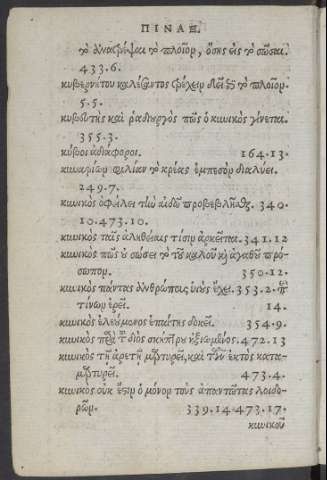 ΠΙΝΑΞ.
τὸ ἀνατρέψαι τὸ πλοῖον, ὅσης εἰς τὸ σῶσαι.
433.6.
κυβερνήτου καλέσαντος τρέχειν δεῖ ἐπὶ τὸ πλοῖον
5.5.
κυβευτὴς καὶ ῥᾴδιουργὸς πῶς ὁ κυνικὸς γίνεται
355.3.
κύβοι ἀδιάφοροι. 164.13.
κυναρίων φιλίαν τὸ κρέας ἐμπεσὸν διαλύει.
249.7.
κυνικὸς ὀφείλει τὴν αἰδῶ προβεβλῆσθαι. 340.
10.473.10.
κυνικὸς ταῖς ἀληθείαις τίσιν ἀρκεῖται. 341.12
κυνικὸς πῶς οὐ σώσει τὸ τοῦ καλοῦ κἀγαθοῦ πρό-
σωπον. 350.12.
κυνικὸς πάντας ἀνθρώπους υἱοὺς ἔχει. 353.2.
τίνων ἐρεῖ. 14.
κυνικὸς ἐλεούμενος ἐπαίτης δοκεῖ. 354.9.
κυνικὸς παρὰ τοῦ διὸς σκήπτρου ἠξιωμένος. 472.13
κυνικὸς τῇ ἀρετῇ μαρτυρεῖ, καὶ τῶν ἐκτὸς κατα-
μαρτυρεῖ. 473.4.
κυνικὸς οὐκ ἔστιν ὁ μόνον τοὺς ἀπαντῶντας λοιδο-
ρῶν. 339.14 473.17.
κυνικοῦ